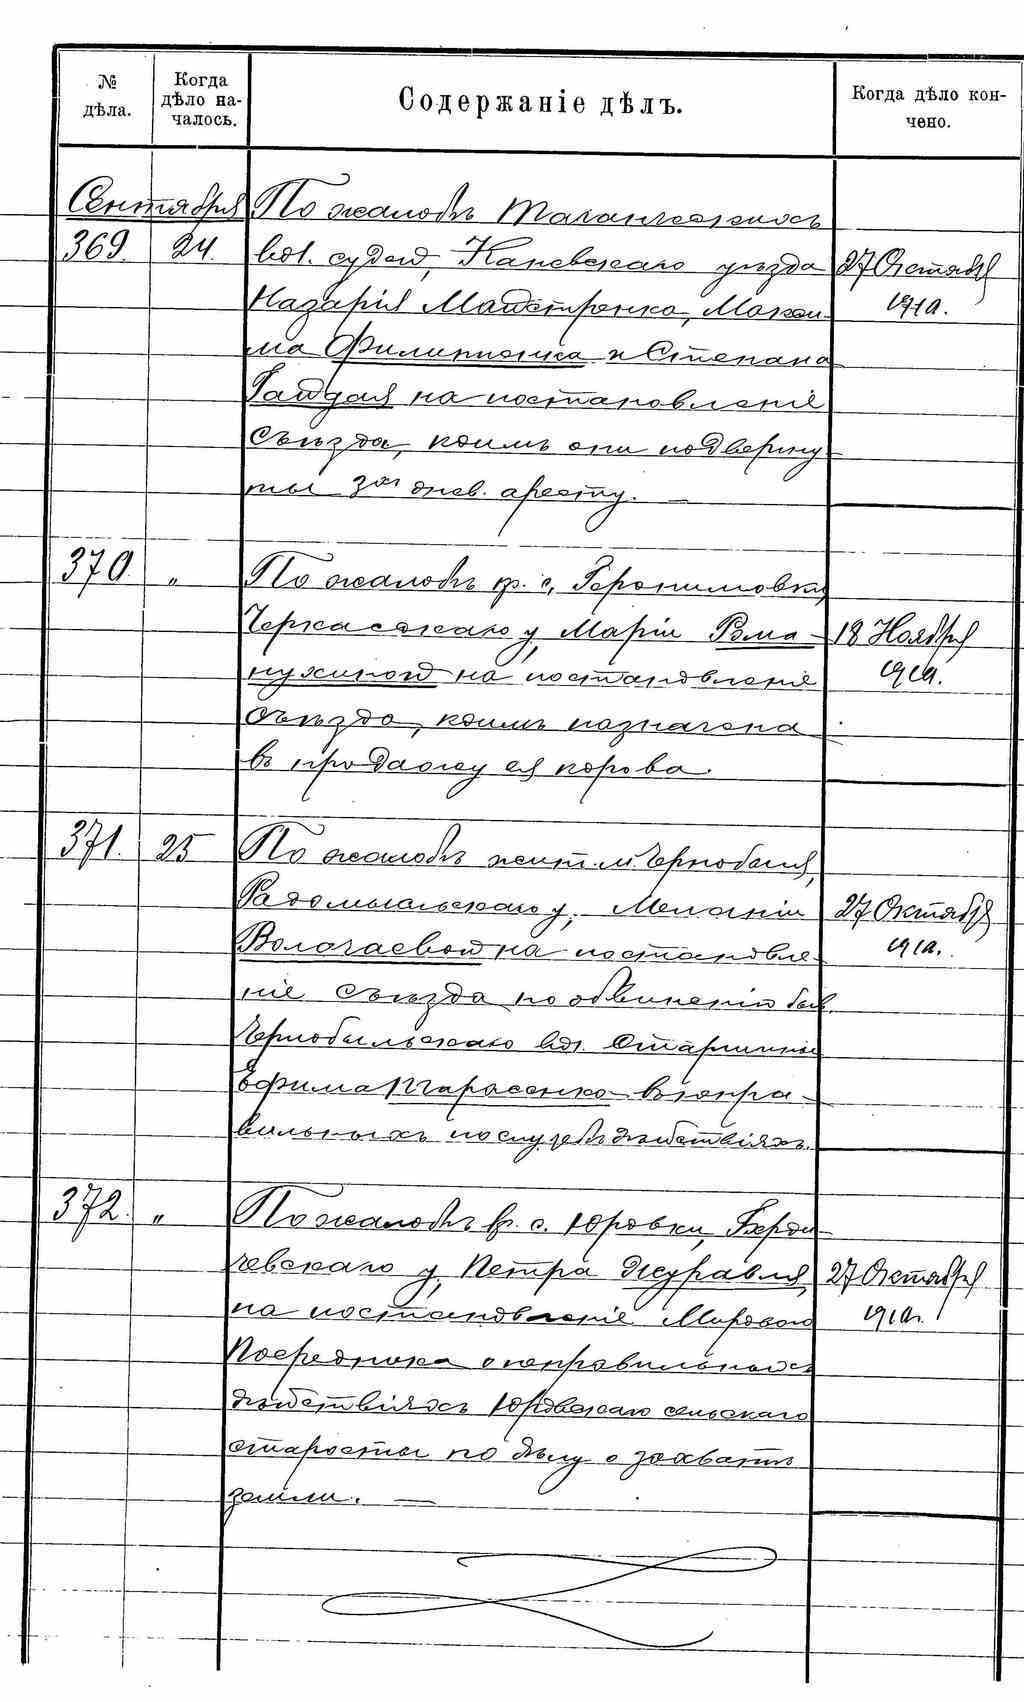 № дѣла. Когда дѣло началось. Содержаніе дѣлъ. Когда дѣло кончено.
Сентября По жалобѣ Таганчскихъ
369. 24. вол. судей, Каневскаго уѣзда 27 Октября
Назарія Майстренко, Макси- 1910.
ма Филипченка и Степана
Гайдая на постановленіе
Съѣзда, коимъ они подвергну-
ты 3хъ днев. аресту. —
370. „ По жалобѣ кр. с. Геронимовки,
Черкасскаго у, Маріи Рома- 18 Ноября
нухиной на постановленіе 1910.
Съѣзда, коимъ назначена
въ продажу ея корова.
371. 25 По жалобѣ жит. м. Чернобыля,
Радомысльскаго у, Меланіи 27 Октября
Волочаевой на постановле- 1910.
ніе Съѣзда по обвиненію быв.
Чернобыльскаго вол. Старшины
Ефима Тарасенко въ непра-
вильныхъ по службѣ дѣйствіяхъ.
372. „ По жалобѣ кр. с. Юровки, Берди-
чевскаго у, Петра Журавля, 27 Октября
на постановленіе Мирового 1910.
Посредника о неправильныхъ
дѣйствіяхъ Юровскаго сельскаго
старосты по дѣлу о захватѣ
земли. —